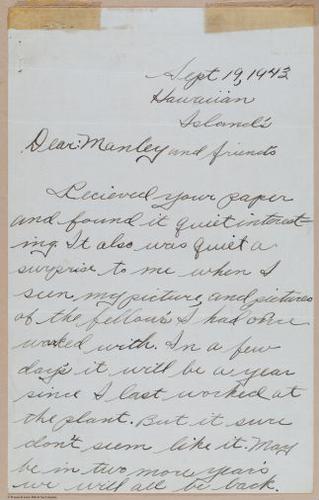 Sept 19, 1943
Hawaiian
Island's
Dear: Manley and friends
Recieved your paper
and found it quiet interest
ing It also was quiet a
surprise to me when I
seen my picture, and pictures
of the fellow's I had once
worked with. In a few
days it will be a year
since I last worked at
the plant. But it sure
don't seem like it. May
be in two more year's
we will all be back.